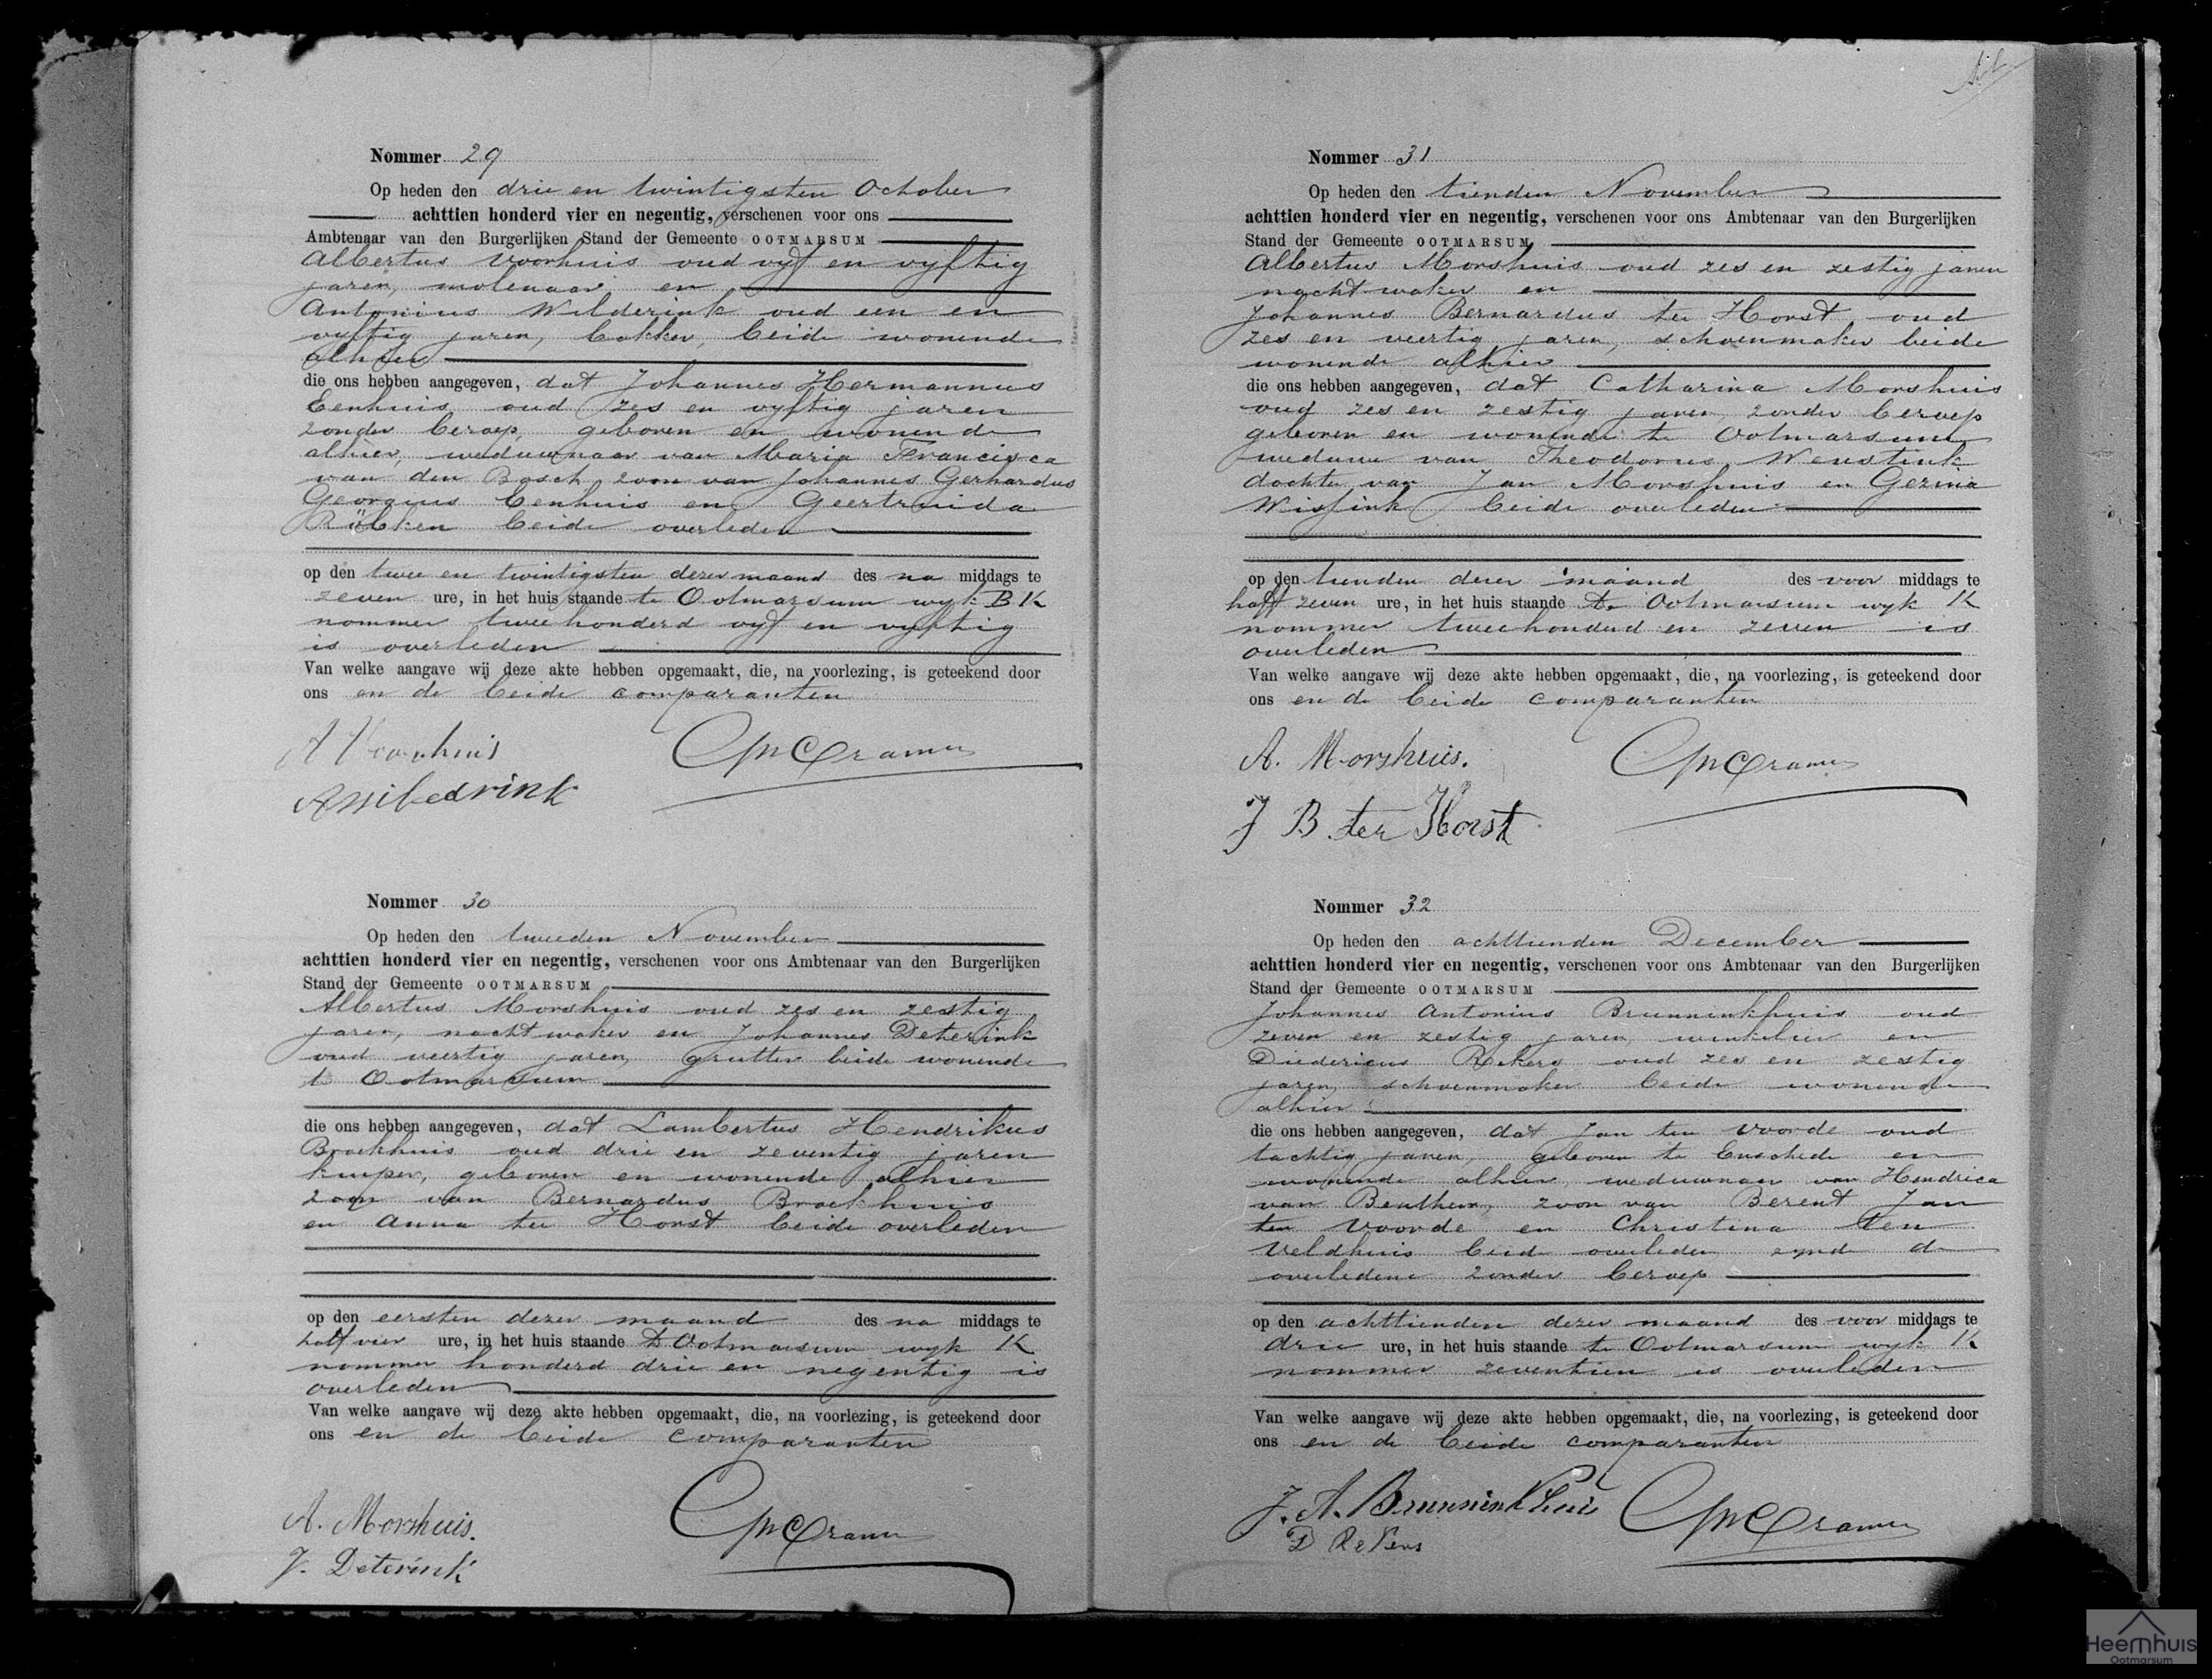 Nommer 29
Op heden den drie en twintigsten October
achttien honderd vier en negentig, verschenen voor ons
Ambtenaar van den Burgerlijken Stand der Gemeente OOTMARSUM
Albertus Voorhuis oud vyf en vyftig
jaren, molenaar en
Antonius Wilderink oud een en
vyftig jaren, bakker, beide wonende
alhier
die ons hebben aangegeven, dat Johannes Hermannus
Eenhuis oud zes en vyftig jaren
zonder beroep, geboren en wonende
alhier, weduwnaar van Maria Francisca
van den Bosch zoon van Johannes Gerhardus
Georgius Eenhuis en Geertruida
Röbken beide overleden
op den twee en twintigsten dezer maand des na middags te
zeven ure, in het huis staande te Ootmarsum wyk B K
nommer twee honderd vyf en vyftig
is overleden
Van welke aangave wij deze akte hebben opgemaakt, die, na voorlezing, is geteekend door
ons en de beide comparanten
A Voorhuis
Cramer
Nommer 30
Op heden den tweeden November
achttien honderd vier en negentig, verschenen voor ons Ambtenaar van den Burgerlijken
Stand der Gemeente OOTMARSUM
Albertus Morshuis oud zes en zestig
jaren, nachtwaker en Johannes Deterink
oud veertig jaren, grutter beide wonende
te Ootmarsum
die ons hebben aangegeven, dat Lambertus Hendrikus
Broekhuis oud drie en zeventig jaren
kuiper, geboren en wonende alhier
zoon van Bernardus Broekhuis
en Anna ter Horst beide overleden
op den eersten dezer maand des na middags te
half vier ure, in het huis staande te Ootmarsum wyk K
nommer honderd drie en negentig is
overleden
Van welke aangave wij deze akte hebben opgemaakt, die, na voorlezing, is geteekend door
ons en de beide comparanten
A. Morshuis.
Cramer
J. Deterink
Nommer 31
Op heden den tienden November
achttien honderd vier en negentig, verschenen voor ons Ambtenaar van den Burgerlijken
Stand der Gemeente OOTMARSUM
Albertus Morshuis oud zes en zestig jaren
nachtwaker en
Johannes Bernardus ter Horst oud
zes en veertig jaren, schoenmaker beide
wonende alhier
die ons hebben aangegeven, dat Catharina Morshuis
oud zes en zestig jaren, zonder beroep
geboren en wonende te Ootmarsum
weduwe van Theodorus Wenstink
dochter van Jan Morshuis en Gezina
Wissink beide overleden
op den tienden dezer maand des voor middags te
half zeven ure, in het huis staande te Ootmarsum wyk K
nommer tweehonderd en zeven is
overleden
Van welke aangave wij deze akte hebben opgemaakt, die, na voorlezing, is geteekend door
ons en de beide comparanten
A. Morshuis.
Cramer
J B. ter Horst
Nommer 32
Op heden den achttienden December
achttien honderd vier en negentig, verschenen voor ons Ambtenaar van den Burgerlijken
Stand der Gemeente OOTMARSUM
Johannes Antonius Brunninkhuis oud
zeven en zestig jaren, winkelier en
Diedericus Rekers oud zes en zestig
jaren, schoenmaker beide wonende
alhier
die ons hebben aangegeven, dat Jan ten Voorde oud
tachtig jaren, geboren te Enschede en
wonende alhier, weduwnaar van Hendrica
van Benthem, zoon van Berent Jan
ten Voorde en Christina ten
Veldhuis beide overleden zynde de
overledene zonder beroep
op den achttienden dezer maand des voor middags te
drie ure, in het huis staande te Ootmarsum wyk K
nommer zeventien is overleden
Van welke aangave wij deze akte hebben opgemaakt, die, na voorlezing, is geteekend door
ons en de beide comparanten
J. A. Brunninkhuis
Cramer
D Rekers
Heemhuis
Ootmarsum